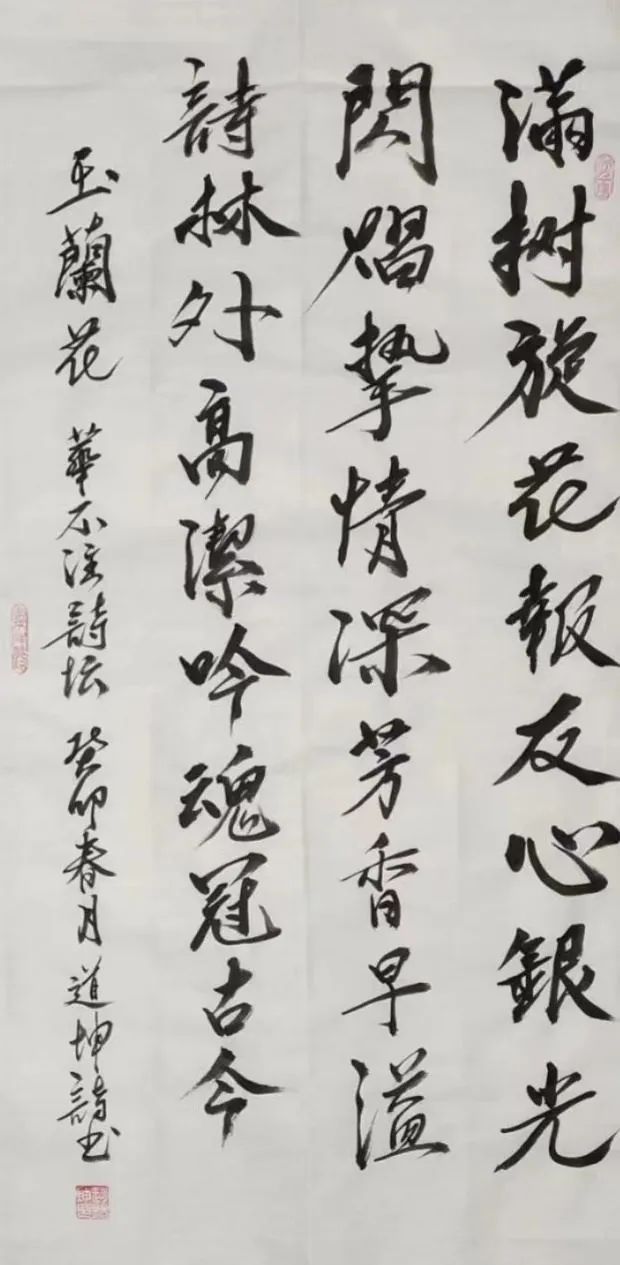 滿树旋花報友心銀光
閃熠挚情深芳香早溢
詩林外高潔吟魂冠古今
玉蘭花 華不注詩坛 癸卯春月 道坤詩书